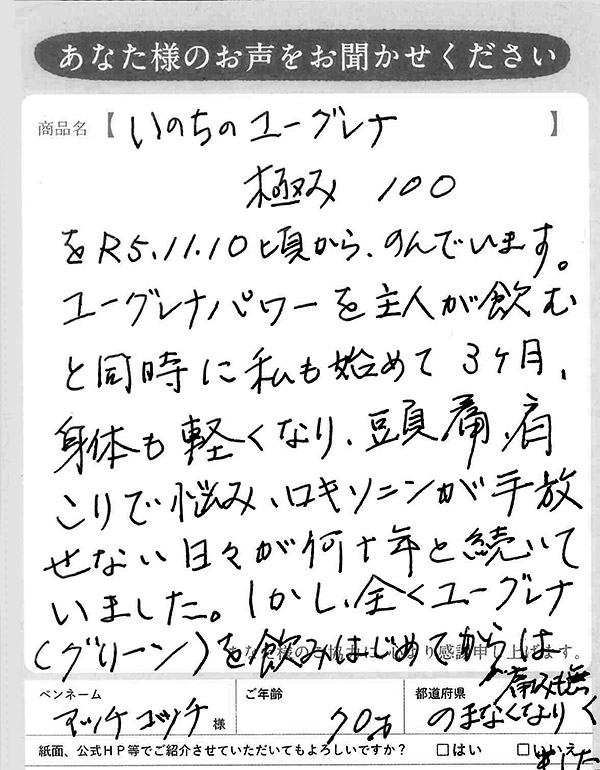 あなた様のお声をお聞かせください
商品名【いのちのユーグレナ 】
極み 100
をR5.11.10頃から、のんでいます。
ユーグレナパワーを主人が飲む
と同時に私も始めて3ヶ月、
身体も軽くなり、頭痛、肩
こりで悩み、ロキソニンが手放
せない日々が何十年と続いて
いました。しかし、全くユーグレナ
(グリーン)を飲みはじめてからは
あなた様のご協力に心より感謝申し上げます。
痛みも無く
ペンネーム ご年齢 都道府県
マッケ コッケ 様 70才 のまなくてなり
ました
紙面、公式HP等でご紹介させていただいてもよろしいですか? □はい □いいえ